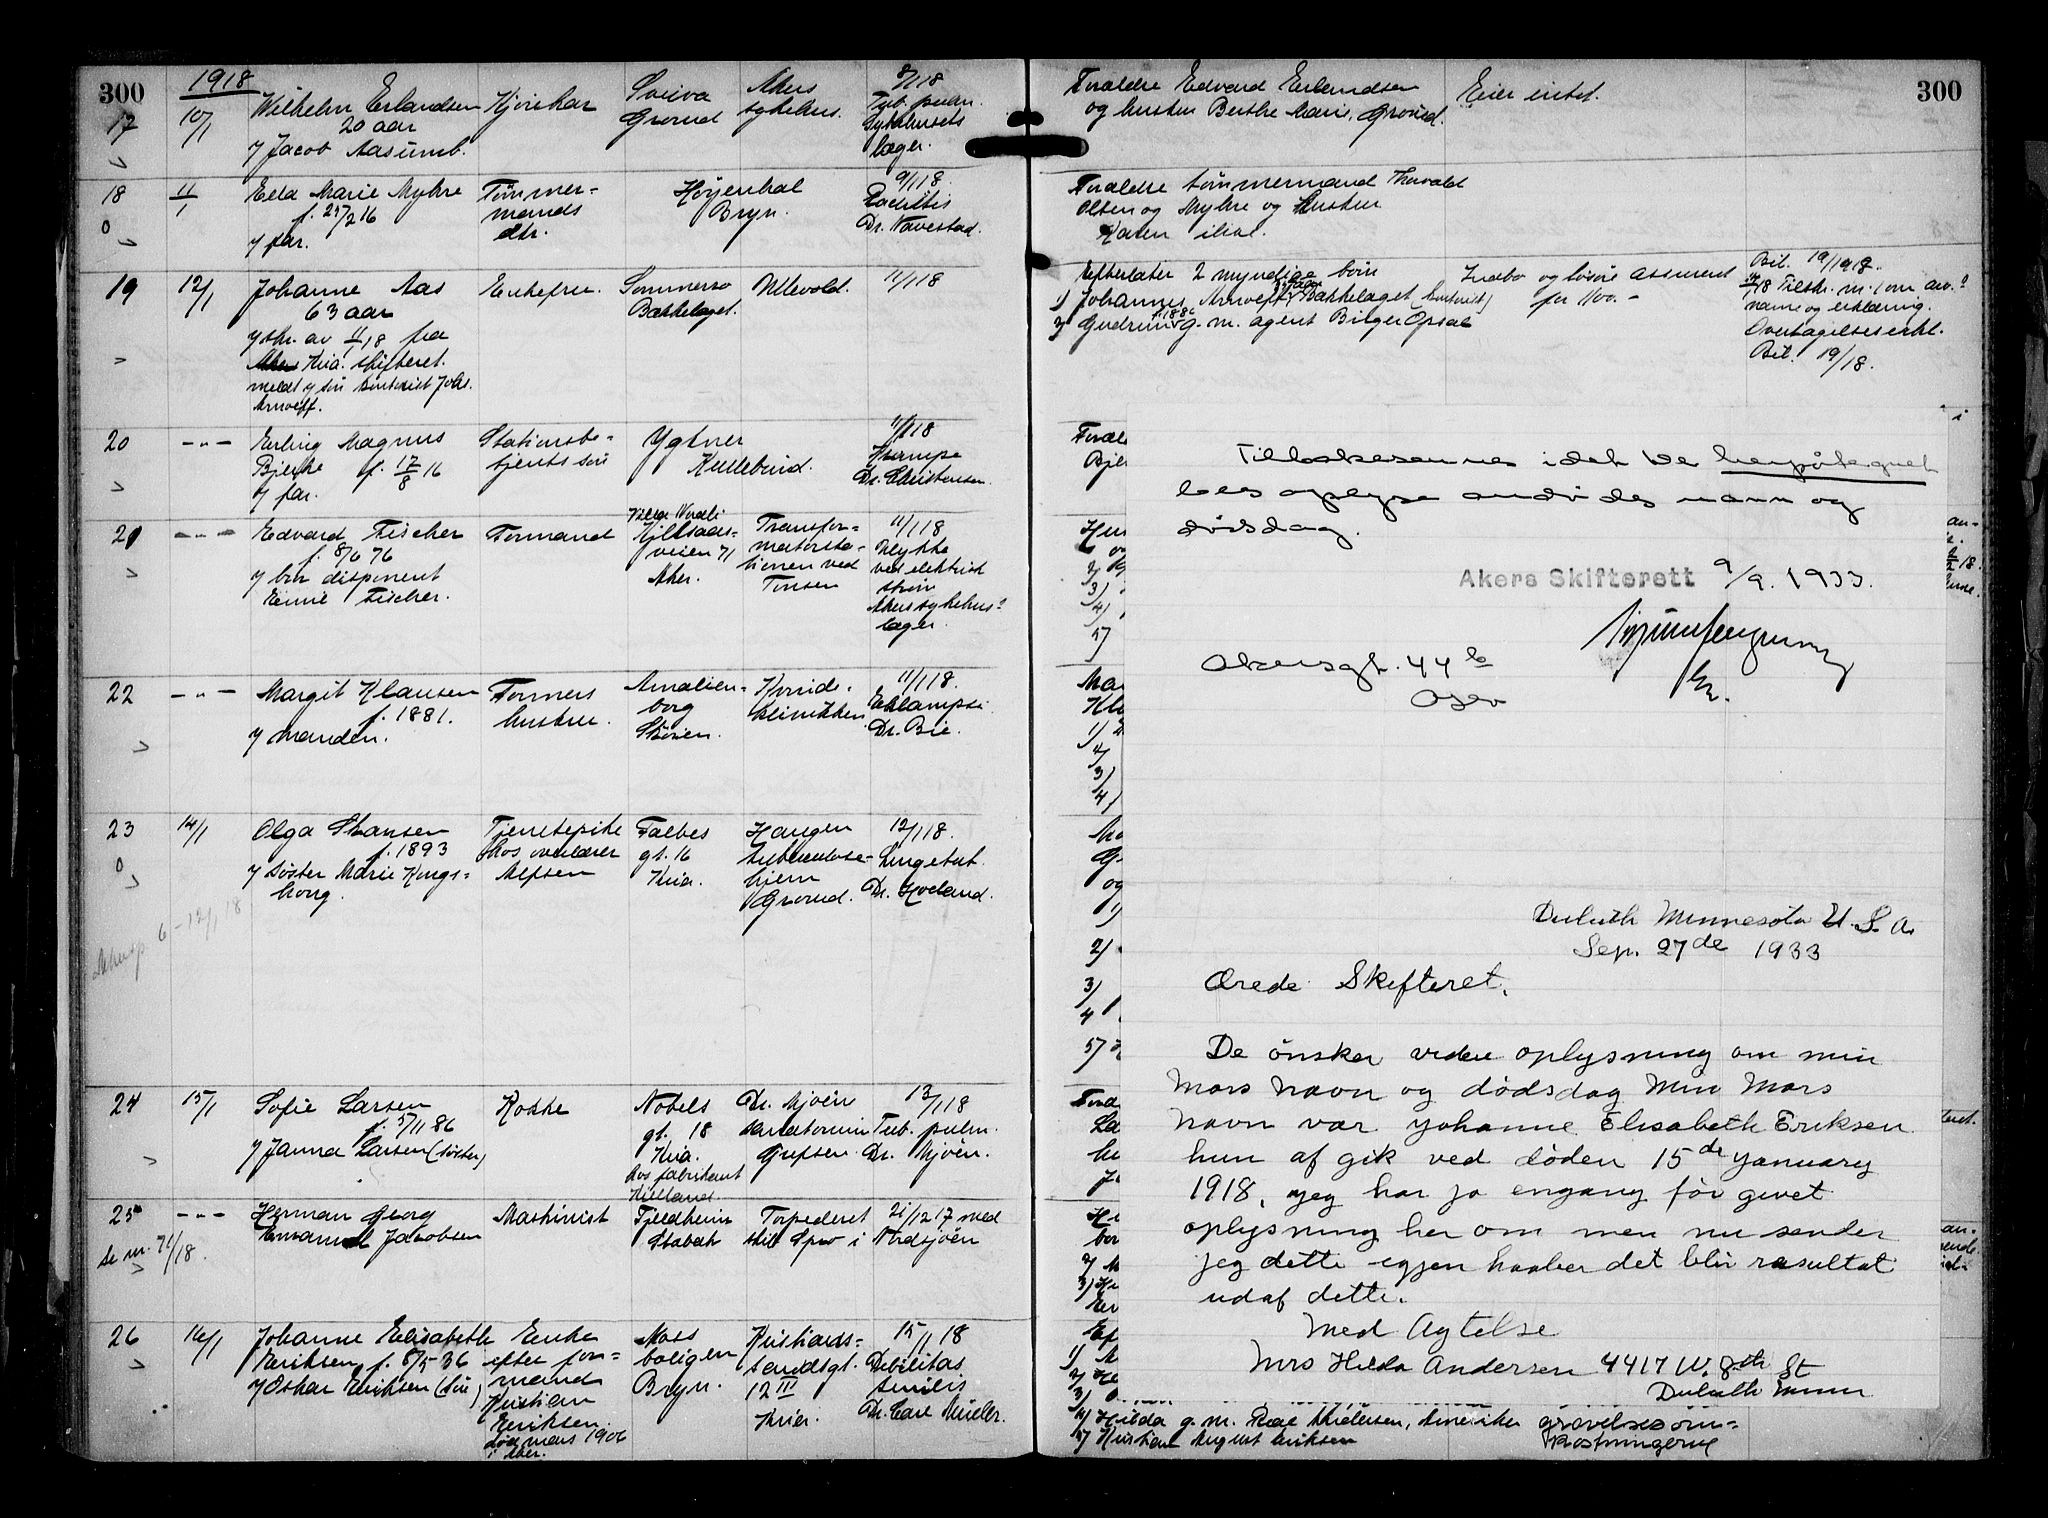 300
1918
17
10/1
Wilhelm Erlandsen
20 aar
v/ Jacob Aasumb.
Kjørekar
Grorud
Akers
sykehus.
8/1 18
Tub. pulm.
Sykehusets
læger.
18
11/1
Ella Marie Myhre
f. 25/2 16
v/ far.
Tømmer-
mands
dtr.
Høyenhal
Bryn.
9/1 18.
Rachitis
Dr. Navestad.
19
12/1
Johanne Aas
63 aar
v/ skr. av 11/1 18 fra
Kria. skifteret.
meldt v/ søn Johs.
Arnveff.
Enkefrue.
Sommerro
Bækkelaget.
Ullevold.
11/1 18
20
- " -
Erling Magnus
Bjerke f. 17/8 16
v/ far.
Stationsbe-
tjents søn
Kullebund.
11/1 18
Krampe
Dr. Christensen.
21
- " -
Edvard Fischer
f. 8/6 76
v/ bror disponent
Fischer.
Formand
Kjelsaas-
veien 71
Aker.
Transfor-
matorsta-
tionen ved
Tonsen
11/1 18
Ulykke
ved elektrisk
strøm
Akers sykehus'
læger.
22
- " -
Margit Klausen
f. 1881.
v/ manden.
Formers
hustru.
Amalien-
borg
Kvinde-
klinikken
11/1 18.
Eklampsi
Dr. Bie.
23
14/1
Olga Hansen
f. 1893
v/ søster Marie Kongs-
haug.
Tjenestepike
hos overlærer
Alfsen
Falbes
gt. 16
Kria.
Haugen
tuberkulose-
hjem
Grorud.
12/1 18.
Lungetub.
Dr. Hovland.
6 - 12/1 18
24
15/1
Sofie Larsen
f. 5/11 86
v/ Janna Larsen (søster)
Kokke
Nobels
gt. 18
Kria.
hos fabrikant
Dr. Mjøen
sanatorium
Grefsen.
13/1 18
Tub. pulm.
Dr. Mjøen.
25
se nr. 71/18.
- " -
Herman Georg
Emanuel Jacobsen
Maskinist
Fjeldheim
Stabæk
Torpederet
21/12 17 med
skib Spro i Nordsjøen
26
16/1
Johanne Elisabeth
Eriksen f. 8/5 36
v/ Oskar Eriksen (søn)
Enke
efter for-
mand
Kristian
Eriksen
død mars 1906
i Aker.
Moss
boligen
Bryn.
Kristians-
sandsgt.
12 III
Kria.
15/1 18
Debilitas
senilis
Dr. Carl Müller.
300
Forældre Edvard Erlandsen
og hustru Berthe Marie, Grorud.
Eier intet.
Forældre tømmermand Thorvald
Olsen og Myhre og hustru
Karen
Efterlater 2 myndige børn
1) Johannes Arnveff, Bækkelaget
2) Gudrun f. 1886 g. m. agent Birger Opsal
Indbo og løsøre assurert
for 1100.-
Bil. 19/1918.
navn og erklæring.
Overtagelseserkl.
Bil. 19/18.
Tilbakesendes idet De herpåtegnet
bes opplyse avdødes navn og
dødsdag.
Akers Skifterett 9/9. 1933.
Akersgt. 44 b
Oslo
Duluth Minnesota U. S. A.
Sep. 27de 1933
Ærede Skifteret.
De ønsker videre oplysning om min
Mors Navn og dødsdag Min Mors
Navn var Johanne Elisabeth Eriksen
hun af gik ved døden 15de January
1918, jeg har jo engang før givet
oplysning her om men nu sender
jeg dette egjen haaber det blir rasultat
udaf dette.
Med Agtelse
Mrs Hilda Andersen 4417 W. 8th St
Duluth Minn
4) Hilda g. m. Andersen, Amerika
5) Kristian August Eriksen
gravelsesom-
kostningerne